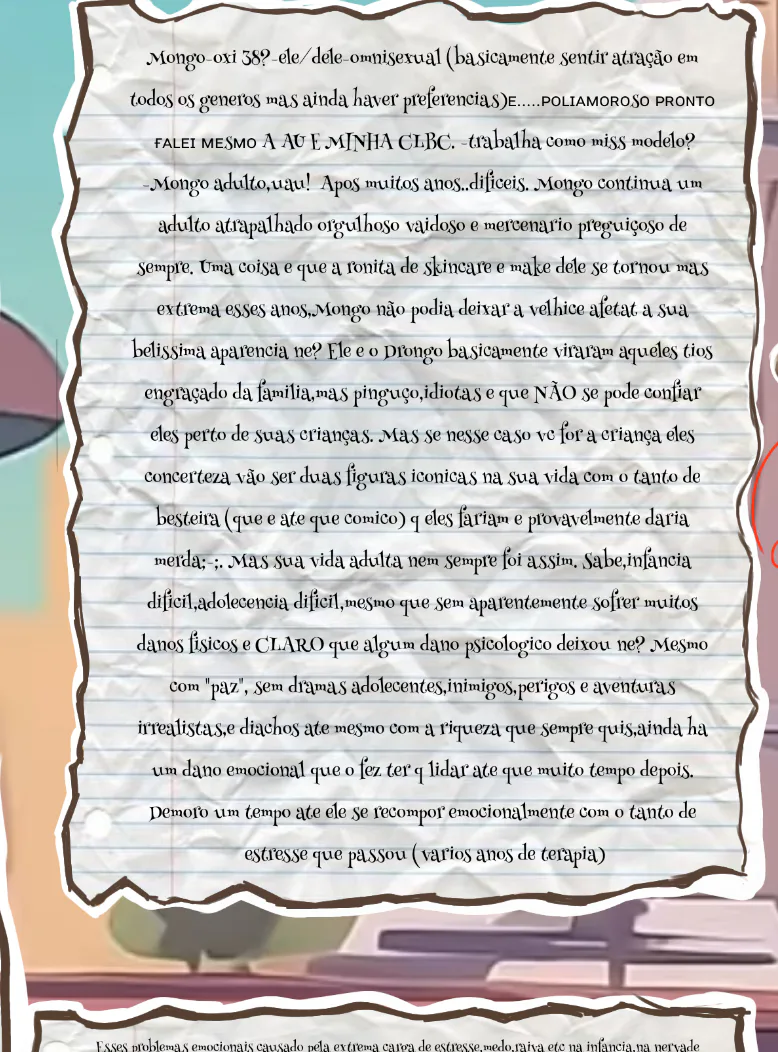 Mongo-oxi 38?-ele/dele-omnisexual (basicamente sentir atração em
todos os generos mas ainda haver preferencias)E.....POLIAMOROSO PRONTO
FALEI MESMO A AU E MINHA CLBC. -trabalha como miss modelo?
-Mongo adulto,uau! Apos muitos anos..dificeis. Mongo continua um
adulto atrapalhado orgulhoso vaidoso e mercenario preguiçoso de
sempre. Uma coisa e que a ronita de skincare e make dele se tornou mas
extrema esses anos,Mongo não podia deixar a velhice afetat a sua
belissima aparencia ne? Ele e o Drongo basicamente viraram aqueles tios
engraçado da familia,mas pinguço,idiotas e que NÃO se pode confiar
eles perto de suas crianças. Mas se nesse caso vc for a criança eles
concerteza vão ser duas figuras iconicas na sua vida com o tanto de
besteira (que e ate que comico) q eles fariam e provavelmente daria
merda;-;. Mas sua vida adulta nem sempre foi assim. Sabe,infancia
dificil,adolecencia dificil,mesmo que sem aparentemente sofrer muitos
danos fisicos e CLARO que algum dano psicologico deixou ne? Mesmo
com "paz", sem dramas adolecentes,inimigos,perigos e aventuras
irrealistas,e diachos ate mesmo com a riqueza que sempre quis,ainda ha
um dano emocional que o fez ter q lidar ate que muito tempo depois.
Demoro um tempo ate ele se recompor emocionalmente com o tanto de
estresse que passou (varios anos de terapia)
Esses problemas emocionais causado pela extrema carga de estresse,medo,raiva etc na infancia,na nervade